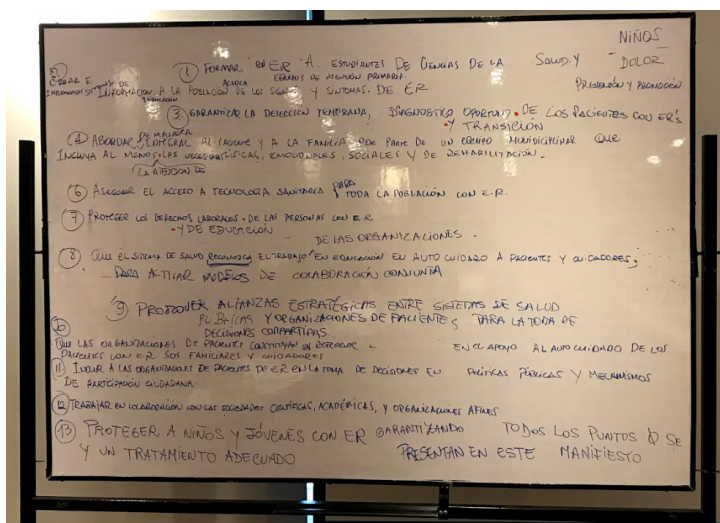 NIÑOS
DOLOR
PREVENCIÓN Y PROMOCIÓN
① FORMAR EN ER A ESTUDIANTES DE CIENCIAS DE LA SALUD. Y
EQUIPOS DE ATENCIÓN PRIMARIA.
②. CREAR E
IMPLEMENTAR DE
INFORMACIÓN A LA POBLACIÓN ACERCA DE LOS SIGNOS Y SÍNTOMAS. DE ER
③ GARANTIZAR LA DETECCIÓN TEMPRANA, DIAGNOSTICO OPORTUNO. DE LOS PACIENTES CON ER'S
• Y TRANSICIÓN
④ ABORDAR DE MANERA INTEGRAL AL PACIENTE Y A LA FAMILIA POR PARTE DE UN EQUIPO MULTIDISCIPLINAR QUE
INCLUYA AL MENOS LAS FÍSICAS, EMOCIONALES, SOCIALES Y DE REHABILITACIÓN.
LA ATENCIÓN DE
⑥ ASEGURAR EL ACCESO A TECNOLOGÍA SANITARIA PARA TODA LA POBLACIÓN CON E.R.
⑦ PROTEGER LOS DERECHOS LABORALES • DE LAS PERSONAS CON E.R
• Y DE EDUCACIÓN
DE LAS ORGANIZACIONES -
⑧ QUE EL SISTEMA DE SALUD RECONOZCA EL TRABAJO EN EDUCACIÓN EN AUTO CUIDADO A PACIENTES Y CUIDADORES,
PARA ACTIVAR MODELOS DE COLABORACIÓN CONJUNTA
⑨ PROMOVER ALIANZAS ESTRATÉGICAS ENTRE SISTEMAS DE SALUD
PUBLICAS Y ORGANIZACIONES DE PACIENTES PARA LA TOMA DE
DECISIONES COMPARTIDAS.
⑩
QUE LAS ORGANIZACIONES DE PACIENTES CONSTITUYAN UN REFERENTE - EN EL APOYO AL AUTOCUIDADO DE LOS
PACIENTES CON E.R SUS FAMILIARES Y CUIDADORES
⑪ INCLUIR A LAS ORGANIZACIONES DE PACIENTES DE ER EN LA TOMA DE DECISIONES EN POLÍTICAS PÚBLICAS Y MECANISMOS
DE PARTICIPACIÓN CIUDADANA.
⑫ TRABAJAR EN COLABORACIÓN CON LAS SOCIEDADES CIENTÍFICAS, ACADÉMICAS, Y ORGANIZACIONES AFINES
⑬ PROTEGER A NIÑOS Y JÓVENES CON ER GARANTIZANDO TODOS LOS PUNTOS Q SE
Y UN TRATAMIENTO ADECUADO PRESENTAN EN ESTE MANIFIESTO